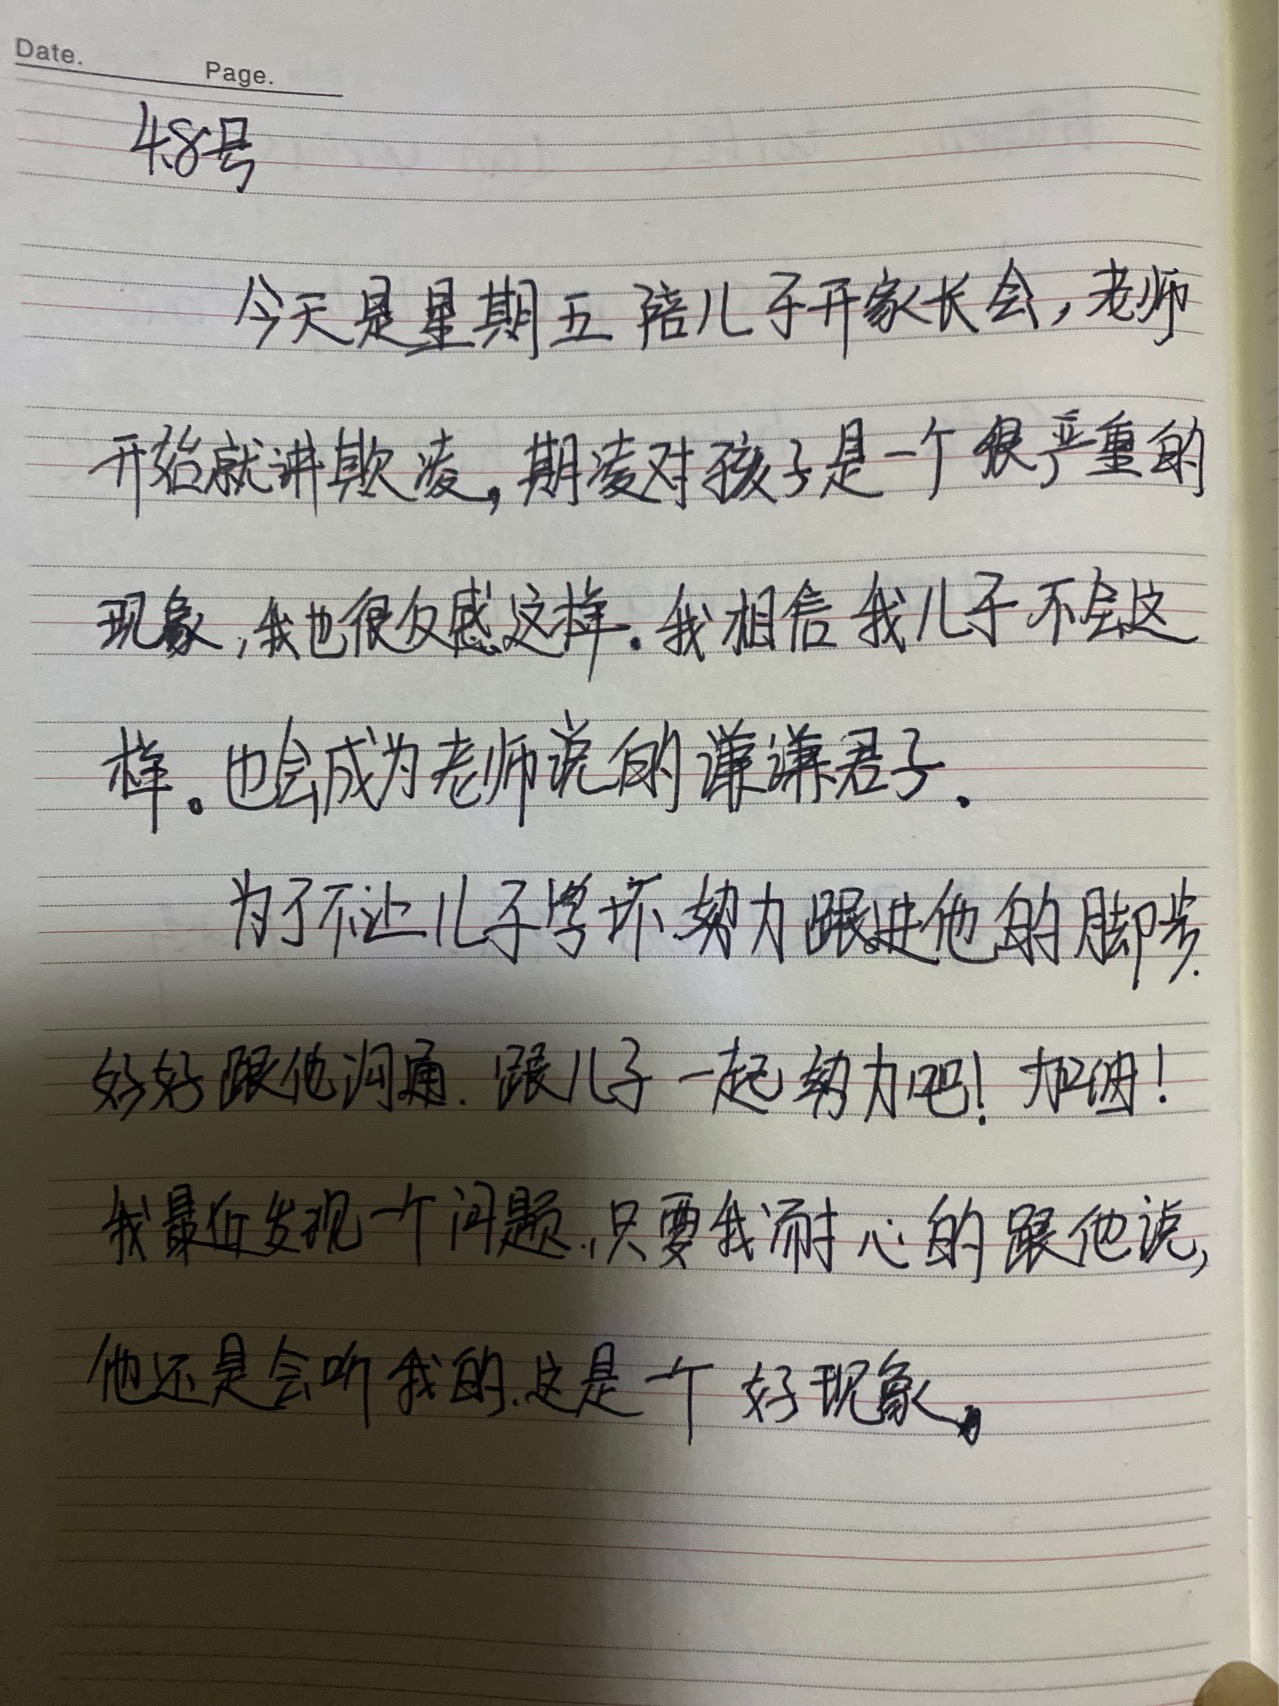 Date.
Page.
4.8号
今天是星期五 陪儿子开家长会，老师
开始就讲欺凌，期凌对孩子是一个很严重的
现象，我也很反感这样。我相信我儿子不会这
样。也会成为老师说的谦谦君子.
为了不让儿子学坏 努力跟进他的脚步.
好好跟他沟通. 跟儿子一起努力吧！加油！
我最近发现一个问题.只要我耐心的跟他说，
他还是会听我的.这是一个好现象。